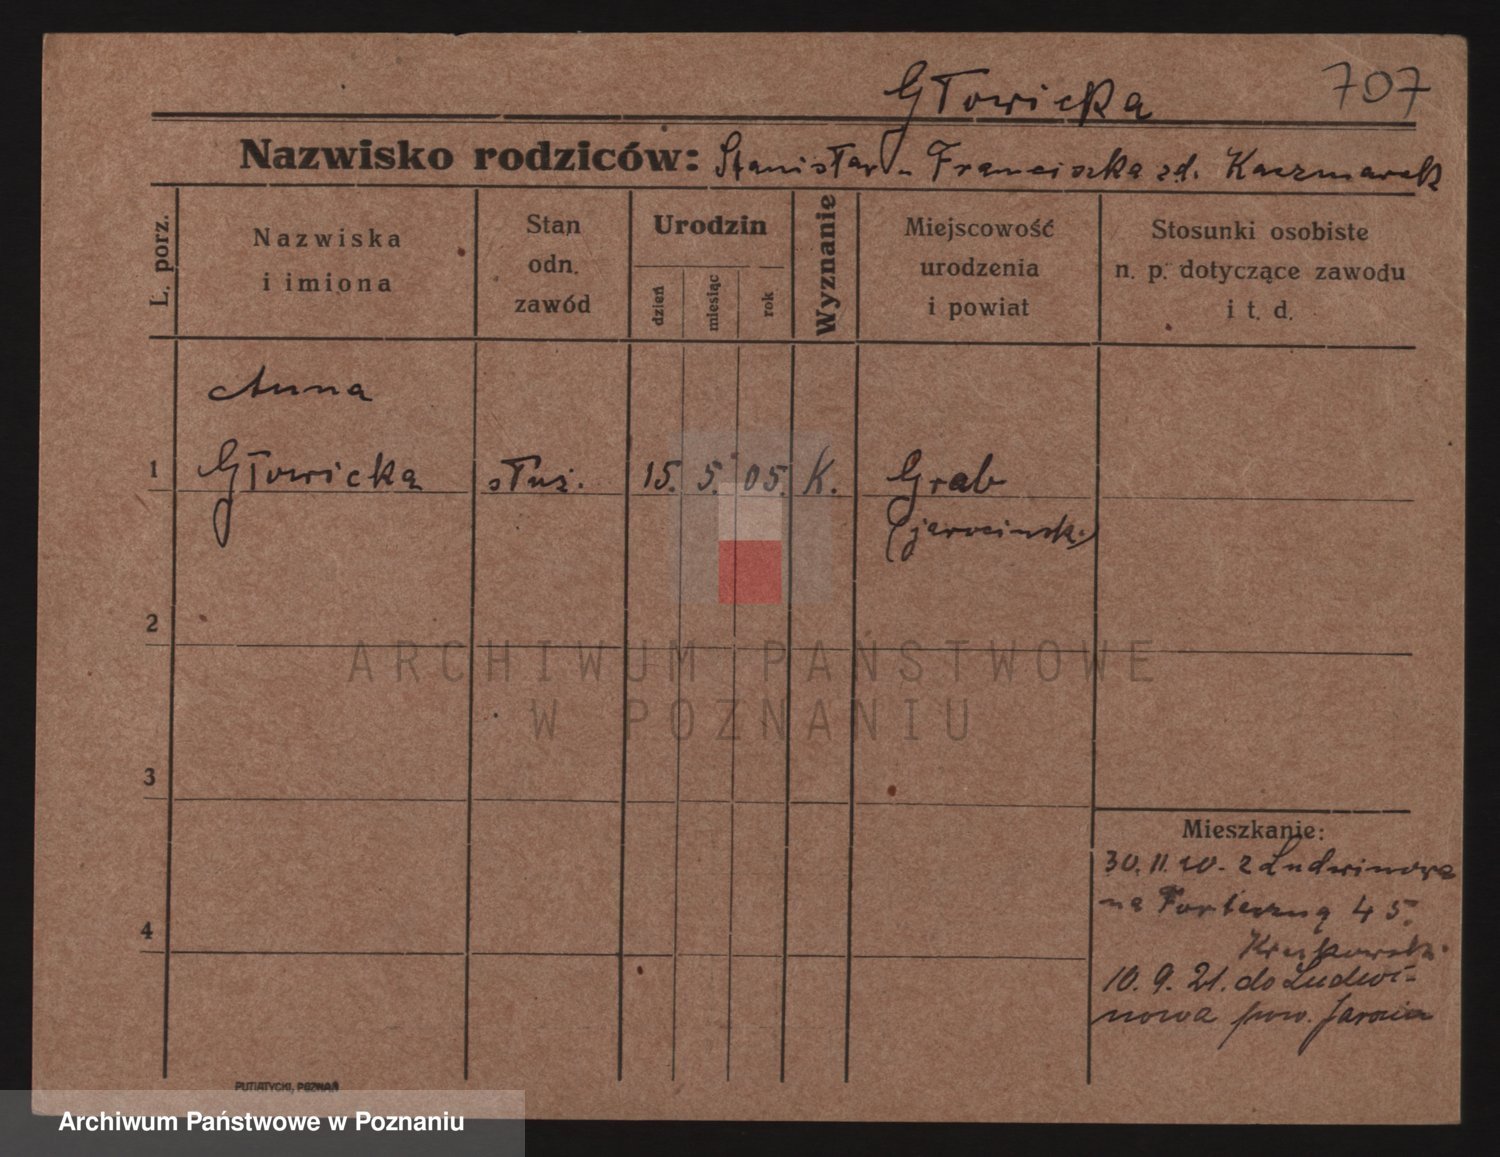 Głowicka 707
Nazwisko rodziców: Stanisław Franciszka zd. Kaczmarek
L. porz.
Nazwiska
i imiona
Stan
odn.
zawód
Urodzin
dzień
miesiąc
rok
Wyznanie
Miejscowość
urodzenia
i powiat
Stosunki osobiste
n. p. dotyczące zawodu
i t. d.
Anna
1 Głowicka służ. 15. 5. 05. K. Grab
(jarocinsk.)
2
ARCHIWUM PAŃSTWOWE
W POZNANIU
3
Mieszkanie:
30. 11. 20. z Ludwinowa
na Forteczną 45.
4
10. 9. 21. do Ludwi-
nowa pow. Jarocin
PUTIATYCKI, POZNAŃ
Archiwum Państwowe w Poznaniu